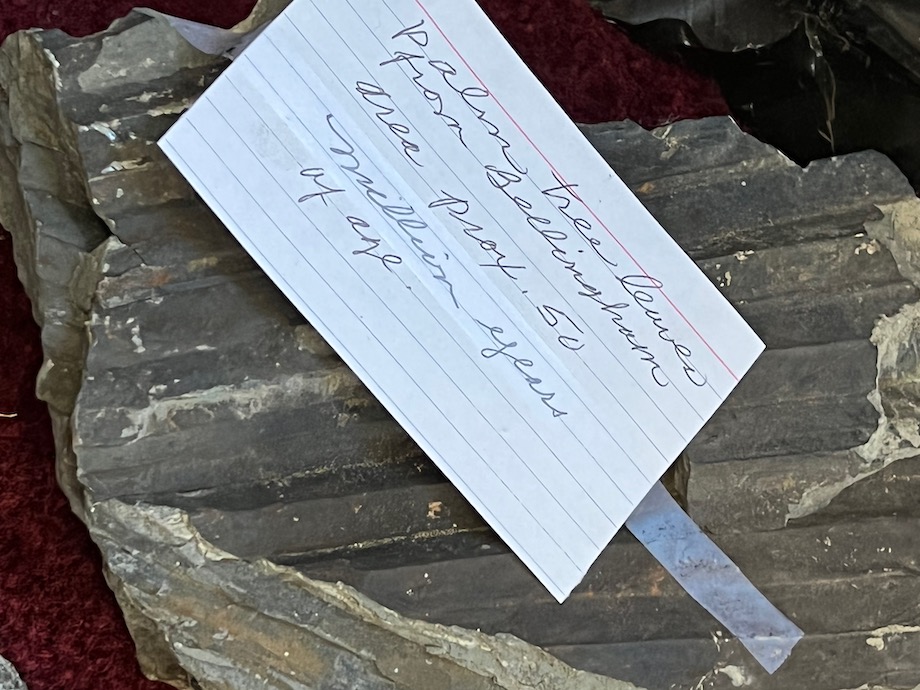 Palm tree leaves
from Bellingham
area prox. 50
million years
of age.